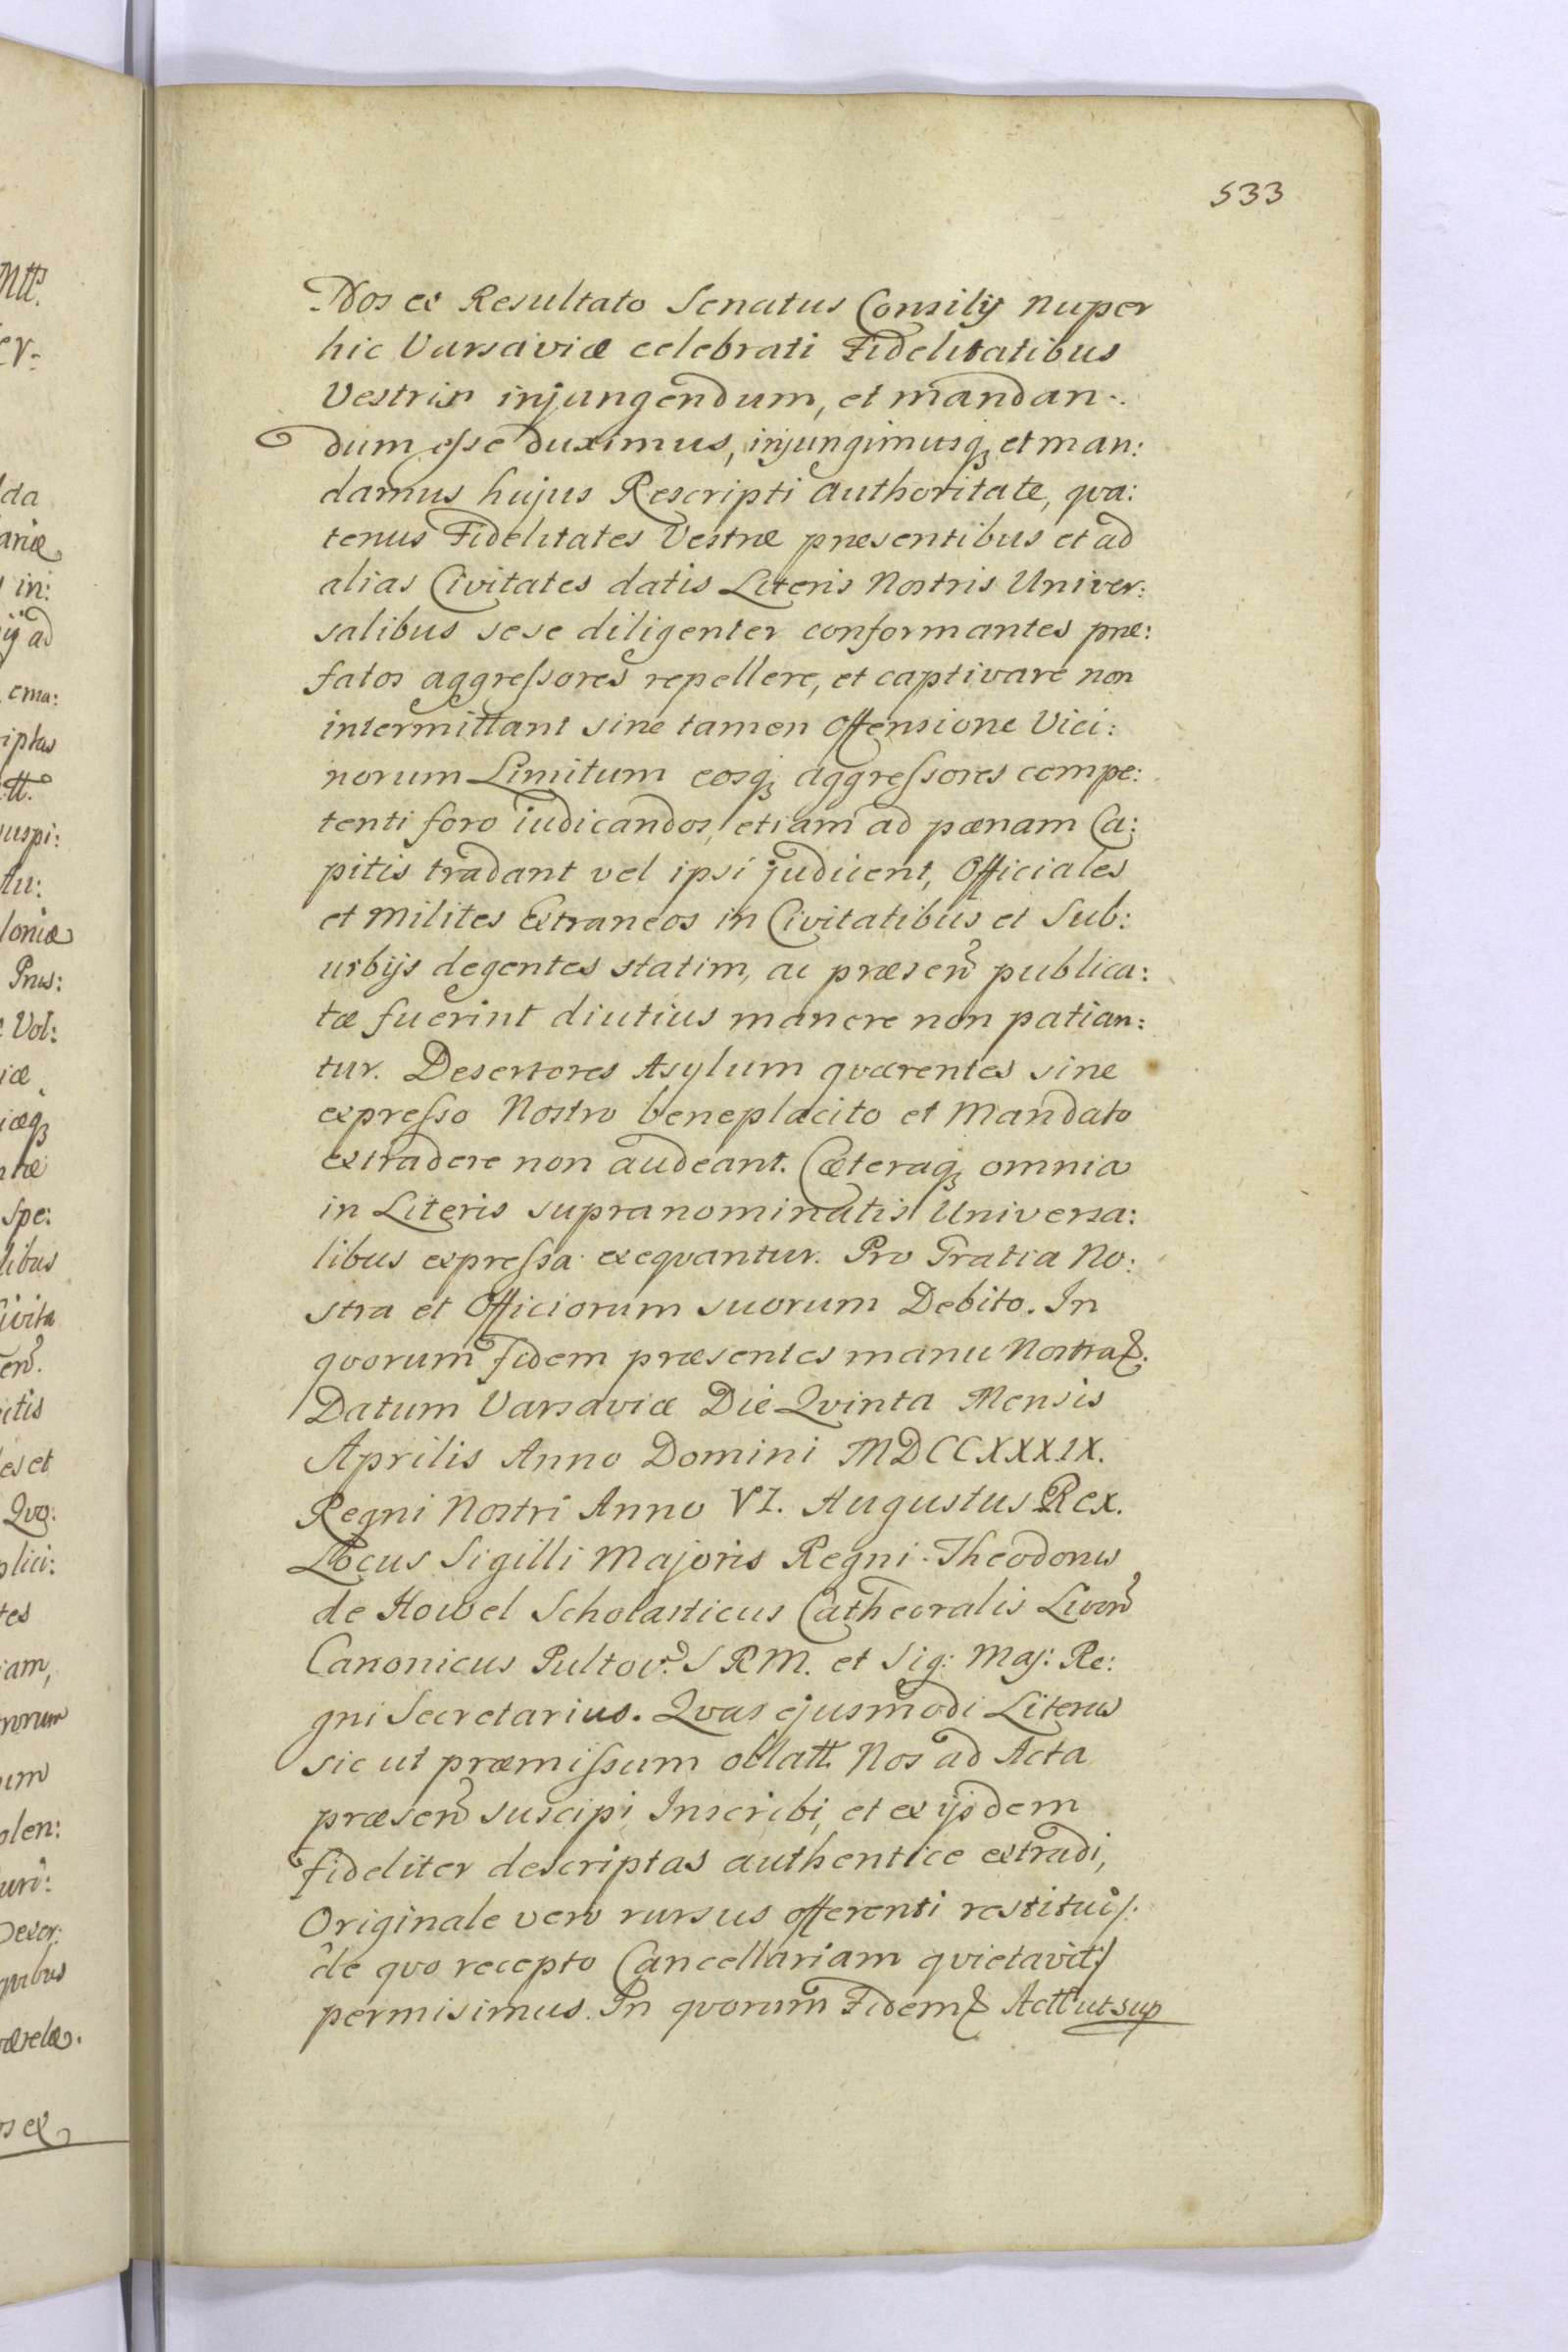 533
Nos ex Resultato Senatus Consilij nuper
hic Varsaviæ celebrati Fidelitatibus
Vestris injungendum, et mandan:
dum esse duximus, injungimusq; et man:
damus hujus Rescripti authoritate, qva:
tenus Fidelitates Vestræ præsentibus et ad
alias Civitates datis Literis Nostris Univer:
salibus sese diligenter conformantes præ:
fatos aggressores repellere, et captivare non
intermittant sine tamen Offensione Vici:
norum Limitum eosq; aggressores compe:
tenti foro iudicandos, etiam ad pænam Ca:
pitis tradant vel ipsi judicent, Officiales
et Milites Extraneos in Civitatibus et Sub:
urbijs degentes statim, ac præsen̄ publica:
tæ fuerint diutius manere non patian:
tur. Desertores Asylum qværentes sine
expresso Nostro beneplacito et Mandato
extradere non audeant. Cæteraq; omnia
in Literis supranominatis Universa:
libus expressa exeqvantur. Pro Gratia No:
stra et Officiorum suorum Debito. In
qvorum fidem præsentes manu Nostra &.
Datum Varsaviæ Die Qvinta Mensis
Aprilis Anno Domini MDCCXXXIX.
Regni Nostri Anno VI. Augustus Rex.
Locus Sigilli Majoris Regni. Theodorus
de Howel Scholasticus Cathedralis Livon̄
Canonicus Pultov. S R M. et Sig: Maj: Re:
gni Secretarius. Qvas ejusmodi Literas
sic ut præmissum oblatt. Nos ad Acta
præsen̄ suscipi Inscribi, et ex ijsdem
fideliter descriptas authentice extradi,
Originale vero rursus offerenti restitui /:
de qvo recepto Cancellariam qvietavit :/
permisimus. In qvorum Fidem & Actt ut sup